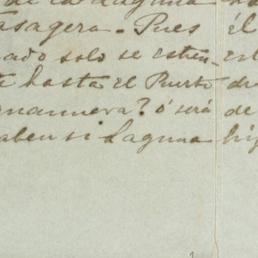 de la Laguna ha
asagera. Pues él
ado solo se estien- en
ta hasta el Puerto de
enanueva? ó será de
aben si Laguna hig